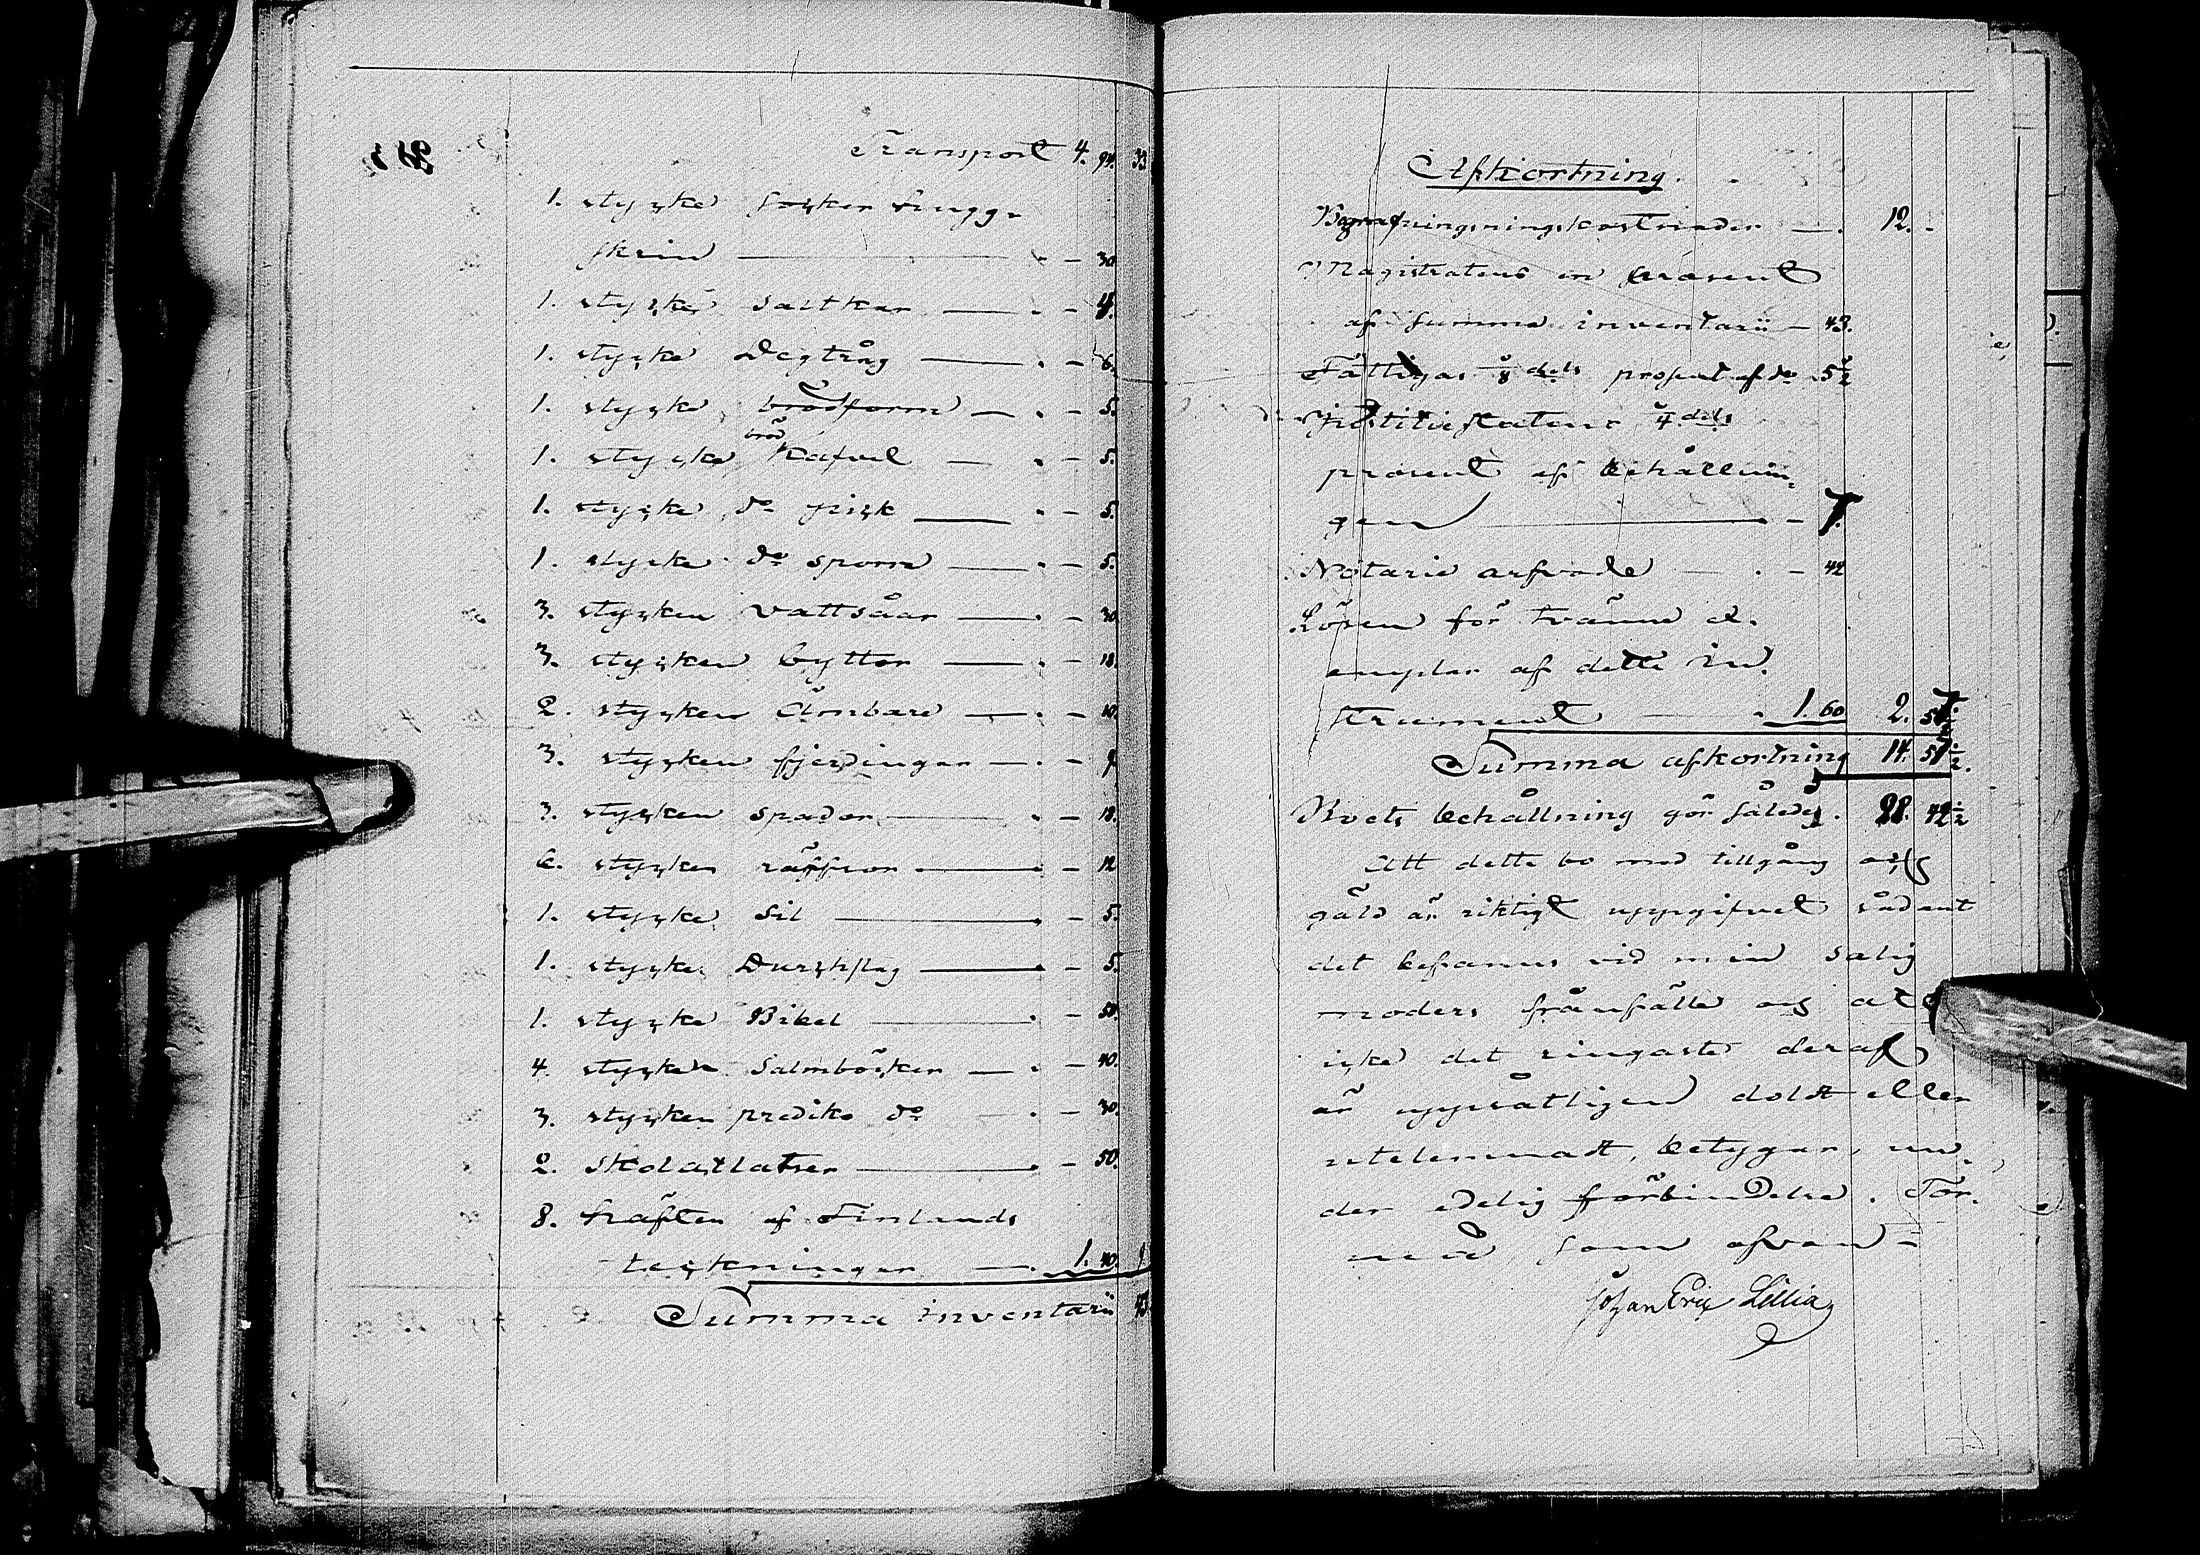 Transport 4. 94. 33
1. stycke socker sugg-
skrin — . – 30
1. stycke Saltkar — . – 4.
1. stycke Degtråg — . – 6.
1. stycke brödform — . – 5.
1. stycke bröd kafvel — . – 5.
1. stycke do pick — . – 5.
1. stycke do sporre — . – 5.
3. stycken vattsåar — . – 30
3. stycken byttor — . – 18.
2. stycken Ämbare — . – 10.
3. stycken fjerdingar — . – 9
3. stycken spador — . – 18.
6. stycken räffsor — . – 12
1. stycke Sil — . – 5.
1. stycke Durchslag — . – 5.
1. stycke Bibel — . – 50.
4. stycken Salmböcker — . – 40.
3. stycken prediko do — . – 30
2. Skolatlatser — . – 50.
8. häften af Finlands
teckningar — . 1. 40.
Summa inventarii 43.
Afkortning.
Begrafningsningskostnader — . 12. -
Magistratens en prosent
af Summa inventarii – 43.
Fattigas 1/8 dels prosent af do . 5 1/2
Justitiæ Statens 1/4 dels
prosent af behållnin-
gen — – 7.
Notarie arfvode — . – 42
Lösen för tvänne ex-
emplar af dette in-
strument — . 1. 60 2. 57 1/2
Summa afkortning 14. 57 1/2.
Boets behållning gör således. 28. 42 1/2
Att dette bo med tillgång och
gäld är riktigt uppgifvet sådant
det befanns vid min Salig
moders frånfälle och at
icke det ringaste deraf
är uppsåtligen doldt eller
utelemnadt, betygar, un-
der edelig förbindelse. Tor-
neå som ofvan –
Johan Eric Lillia